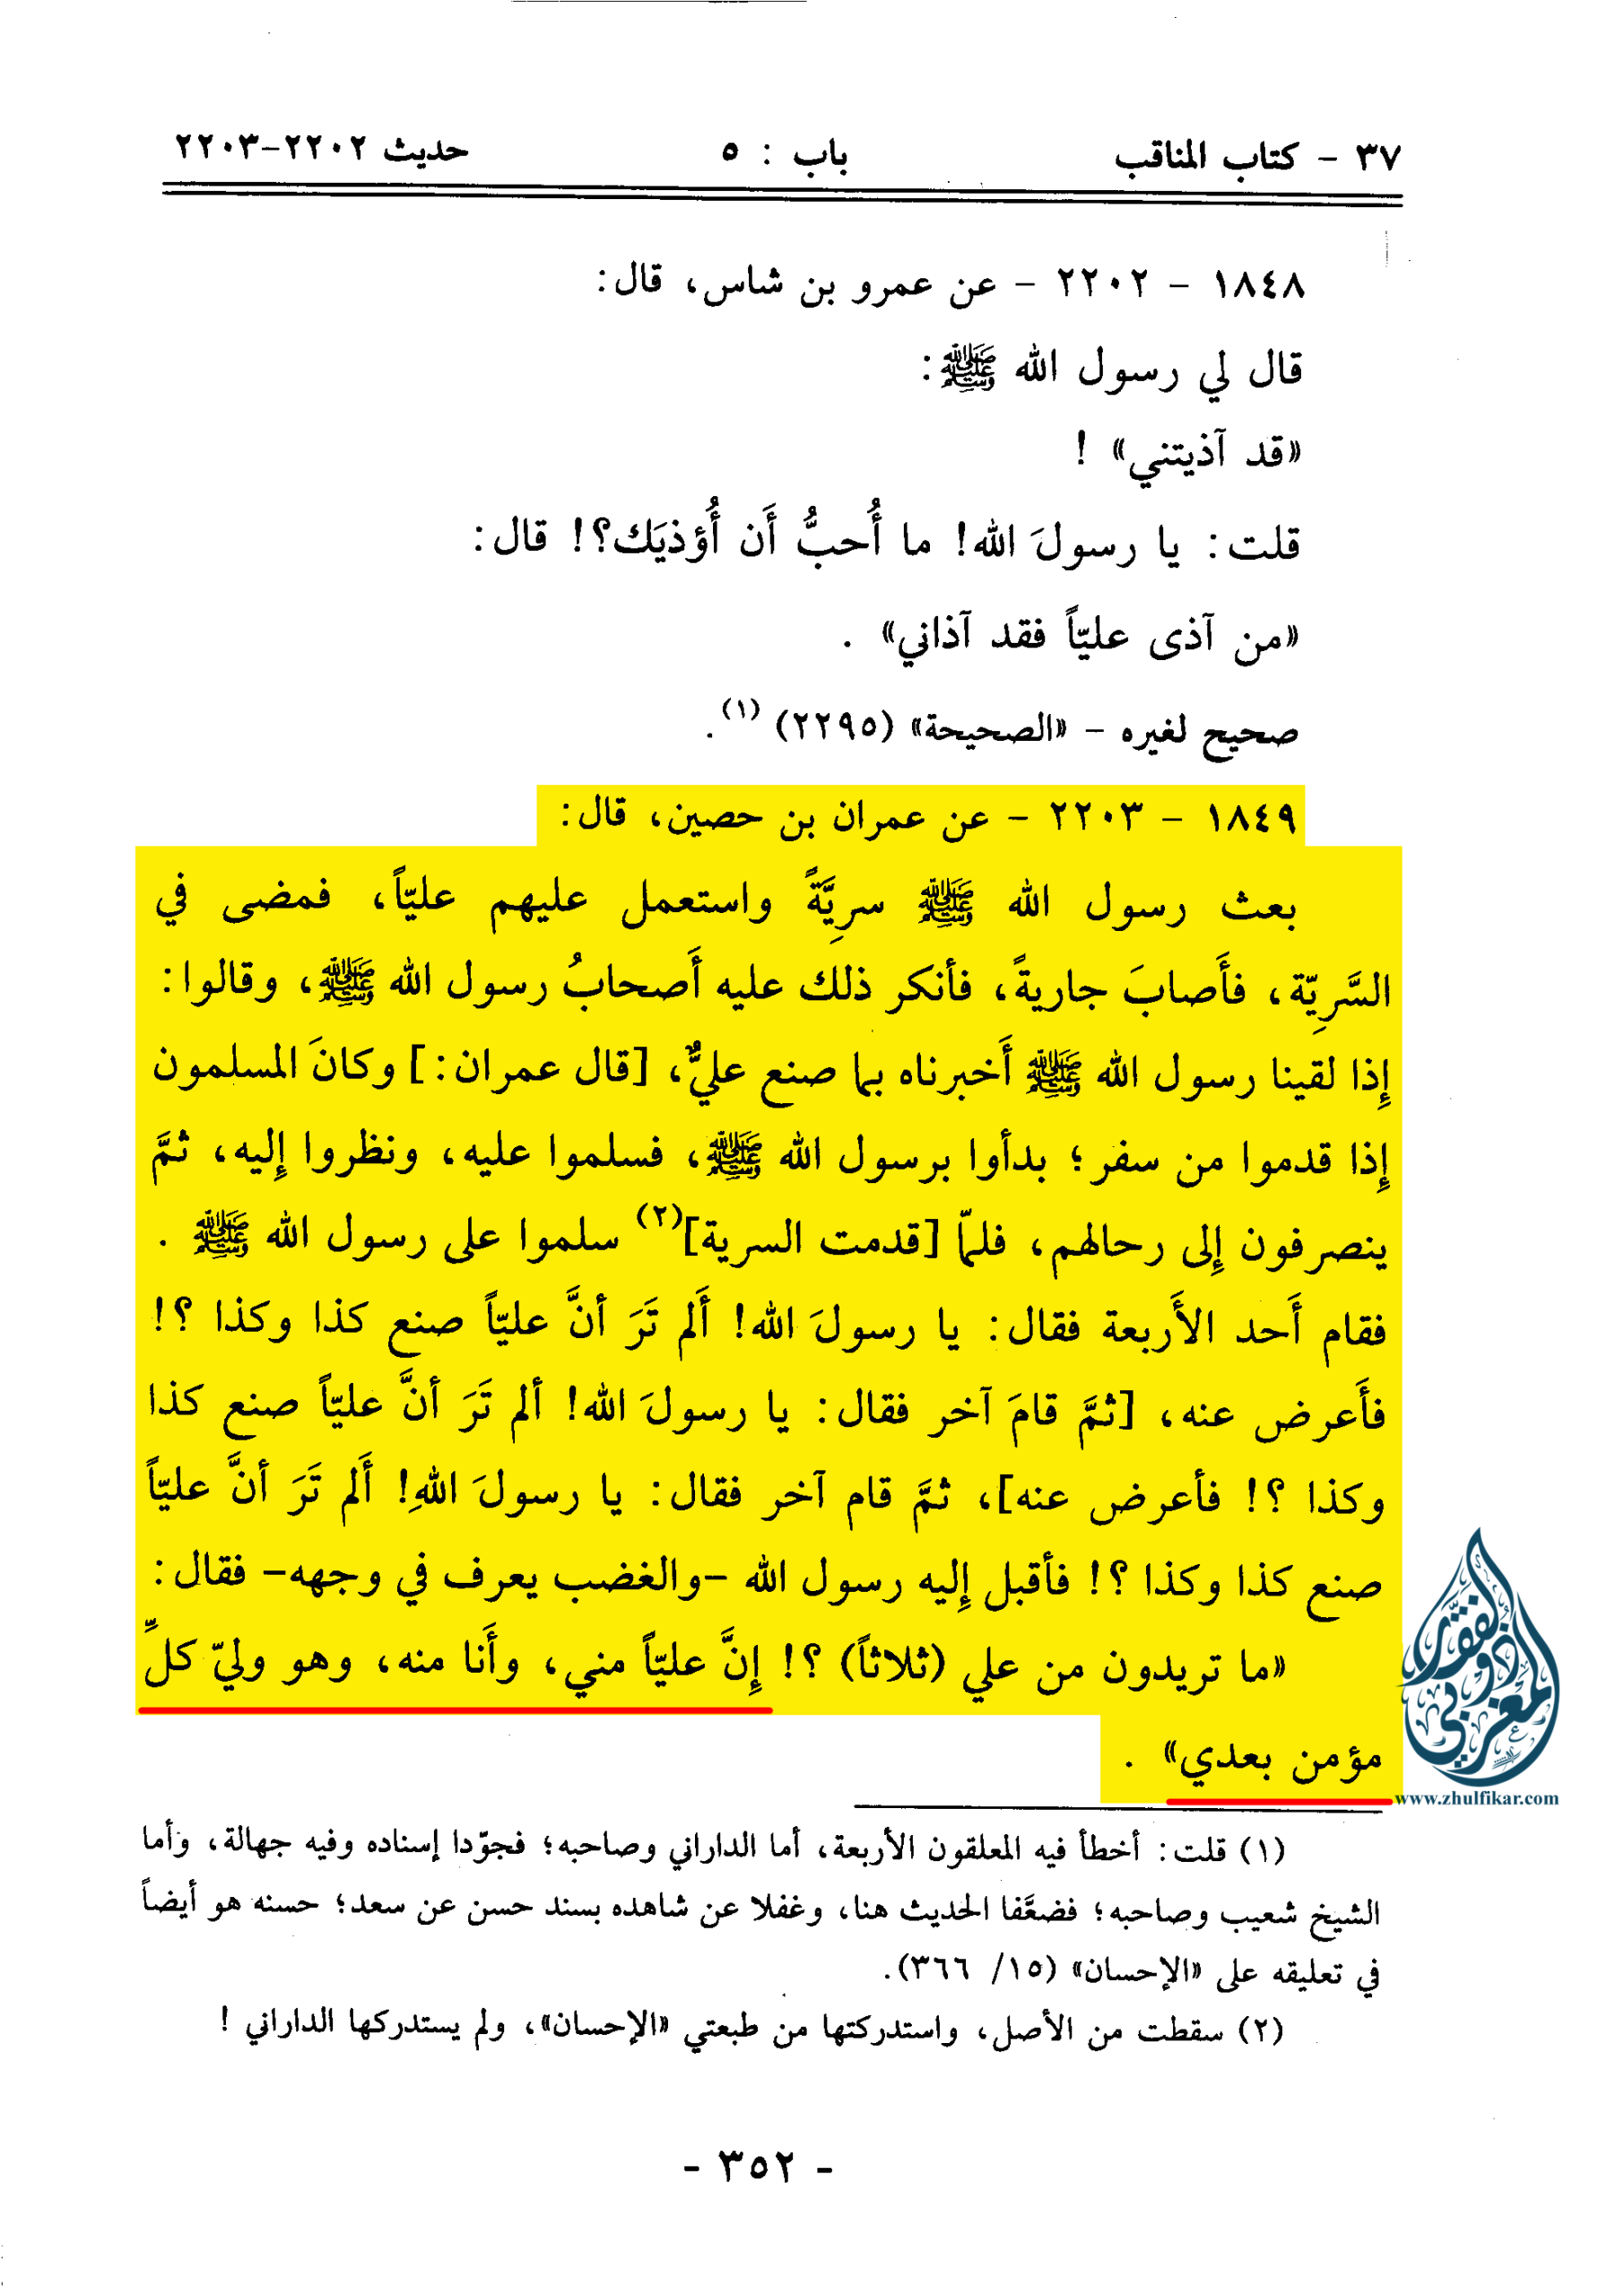 ٣٧ - كتاب المناقب باب : ٥ حديث ٢٢٠٢-٢٢٠٣
١٨٤٨ - ٢٢٠٢ - عن عمرو بن شاس، قال:
قال لي رسول الله ﷺ:
«قد آذيتني» !
قلت: يا رسولَ الله! ما أُحبُّ أَن أُؤذيَك؟! قال:
«من آذى عليّاً فقد آذاني» .
صحيح لغيره - «الصحيحة» (٢٢٩٥) (١).
١٨٤٩ - ٢٢٠٣ - عن عمران بن حصين، قال:
بعث رسول الله ﷺ سريَّةً واستعمل عليهم عليّاً، فمضى في
السَّرِيّة، فأَصابَ جاريةً، فأنكر ذلك عليه أَصحابُ رسول الله ﷺ، وقالوا:
إِذا لقينا رسول الله ﷺ أَخبرناه بما صنع عليٌّ، [قال عمران:] وكانَ المسلمون
إِذا قدموا من سفر؛ بدأوا برسول الله ﷺ، فسلموا عليه، ونظروا إِليه، ثمَّ
ينصرفون إِلى رحالهم، فلمّا [قدمت السرية](٢) سلموا على رسول الله ﷺ .
فقام أَحد الأَربعة فقال: يا رسولَ الله! أَلم تَرَ أنَّ عليّاً صنع كذا وكذا ؟!
فأَعرض عنه، [ثمَّ قامَ آخر فقال: يا رسولَ الله! ألم تَرَ أنَّ عليّاً صنع كذا
وكذا ؟! فأعرض عنه]، ثمَّ قام آخر فقال: يا رسولَ اللهِ! أَلم تَرَ أنَّ عليّاً
صنع كذا وكذا ؟! فأقبل إِليه رسول الله -والغضب يعرف في وجهه- فقال:
«ما تريدون من علي (ثلاثاً) ؟! إِنَّ عليّاً مني، وأَنا منه، وهو وليّ كلِّ
مؤمن بعدي» .
(١) قلت: أخطأ فيه المعلقون الأربعة، أما الداراني وصاحبه؛ فجوّدا إسناده وفيه جهالة، وأما
الشيخ شعيب وصاحبه؛ فضعَّفا الحديث هنا، وغفلا عن شاهده بسند حسن عن سعد؛ حسنه هو أيضاً
في تعليقه على «الإحسان» (١٥/ ٣٦٦).
(٢) سقطت من الأصل، واستدركتها من طبعتي «الإحسان»، ولم يستدركها الداراني !
- ٣٥٢ -
www.zhulfikar.com